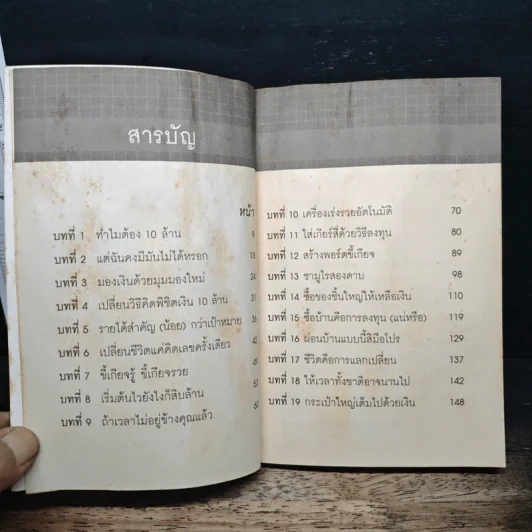 สารบัญ
หน้า
บทที่ 1 ทำไมต้อง 10 ล้าน 9
บทที่ 2 แต่ฉันคงมีมันไม่ได้หรอก 15
บทที่ 3 มองเงินด้วยมุมมองใหม่ 24
บทที่ 4 เปลี่ยนวิธีคิดพิชิตเงิน 10 ล้าน 31
บทที่ 5 รายได้สำคัญ (น้อย) กว่าเป้าหมาย 36
บทที่ 6 เปลี่ยนชีวิตแค่คิดเลขครั้งเดียว 43
บทที่ 7 ขี้เกียจรู้ ขี้เกียจรวย
บทที่ 8 เริ่มต้นไวยังไงก็สิบล้าน
บทที่ 9 ถ้าเวลาไม่อยู่ข้างคุณแล้ว 60
บทที่ 10 เครื่องเร่งรวยอัตโนมัติ 70
บทที่ 11 ใส่เกียร์สี่ด้วยวิธีลงทุน 80
บทที่ 12 สร้างพอร์ตขี้เกียจ 89
บทที่ 13 ซามูไรสองดาบ 98
บทที่ 14 ซื้อของชิ้นใหญ่ให้เหลือเงิน 110
บทที่ 15 ซื้อบ้านคือการลงทุน (แน่หรือ) 119
บทที่ 16 ผ่อนบ้านแบบนี้สิมือโปร 130
บทที่ 17 ชีวิตคือการแลกเปลี่ยน 137
บทที่ 18 ให้เวลาทั้งชาติอาจนานไป 142
บทที่ 19 กระเป๋าใหญ่เต็มไปด้วยเงิน 148